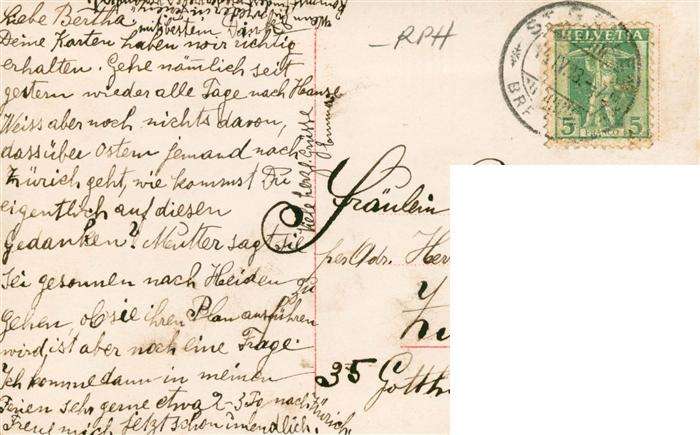 Liebe Bertha
mit bestem Dank
Deine Karten haben wir richtig
erhalten. Gehe nämlich seit
gestern wieder alle Tage nach Hause
Weiss aber noch nichts davon,
dass über Ostern jemand nach
Zürich geht, wie kommst Du
eigentlich auf diesen
Gedanken? Mutter sagt sie
sei gesonnen nach Heiden zu
gehen, ob sie ihren Plan ausführen
wird ist aber noch eine Frage.
Ich komme dann in meinen
Ferien sehr gerne etwa 2-3 Tg nach Zürich
Freue mich jetzt schon unendlich.
Viele herzl Grüsse
RPH
HELVETIA
5 FRANCO 5
Fräulein
per Adr. Her
35 Gotth